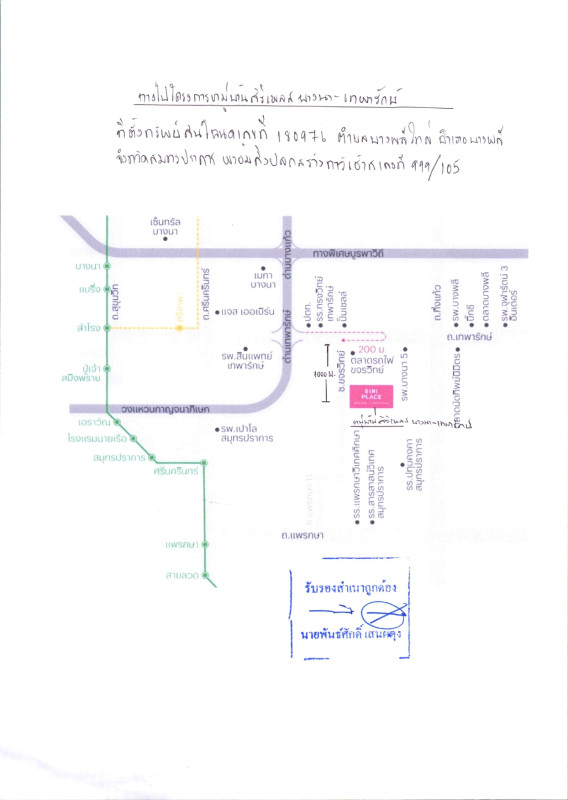 ทางไปโครงการหมู่บ้านสิริเพลส บางนา-เทพารักษ์
ที่ตั้งทรัพย์สินโฉนดเลขที่ 180976 ตำบลบางพลีใหญ่ อำเภอบางพลี
จังหวัดสมุทรปราการ พร้อมสิ่งปลูกสร้าง
999/105
เซ็นทรัล
บางนา
ทางพิเศษบูรพาวิถี
ด่านบางแก้ว
บางนา
แบริ่ง
สำโรง
ปู่เจ้า
สมิงพราย
ถ.สุขุมวิท
ศรีเทพา
ถ.ศรีนครินทร์
เมกา
บางนา
แจส เออเบิร์น
รพ.สินแพทย์
เทพารักษ์
ด่านเทพารักษ์
ปตท.
รร.ทรงวิทย์
เทพารักษ์
ปิ่นเชลล์
ถ.กิ่งแก้ว
รพ.บางพลี
บิ๊กซี
ตลาดบางพลี
รพ.จุฬารัตน์ 3
อินเตอร์
ถ.เทพารักษ์
200 ม.
ตลาดรถไฟ
ขจรวิทย์
ซ.ขจรวิทย์
1000 ม.
รพ.บางนา 5
ตลาดนัดทิพย์นิมิตร
SIRI
PLACE
หมู่บ้านสิริเพลส บางนา-เทพารักษ์
วงแหวนกาญจนาภิเษก
เอราวัณ
โรงเรียนนายเรือ
สมุทรปราการ
ศรีนครินทร์
รพ.เปาโล
สมุทรปราการ
รร.แพรกษาวิเทศศึกษา
รร.สารสาสน์วิเทศ
สมุทรปราการ
รร.ปทุมคงคา
สมุทรปราการ
ถ.แพรกษา
แพรกษา
สายลวด
รับรองสำเนาถูกต้อง
นายพันธ์ศักดิ์ เสนผดุง